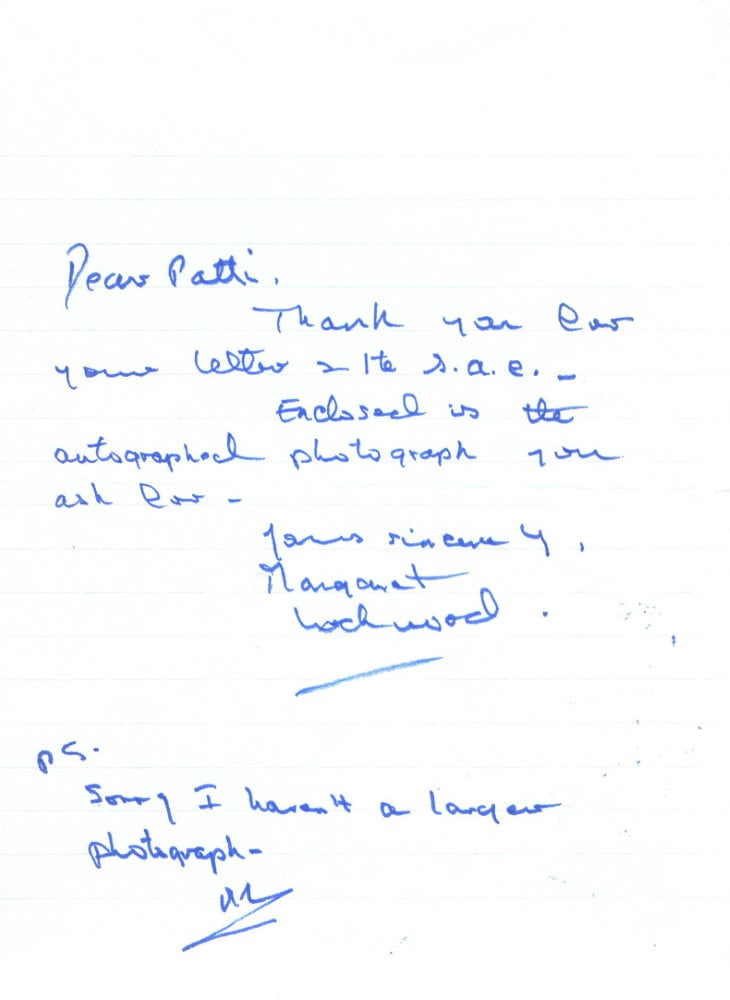 Dear Patti.
Thank you for
your letter & the s.a.e. -
Enclosed is the
autographed photograph you
ask for -
Yours sincerely,
Margaret
Lockwood.
PS.
Sorry I haven't a larger
photograph -
ML